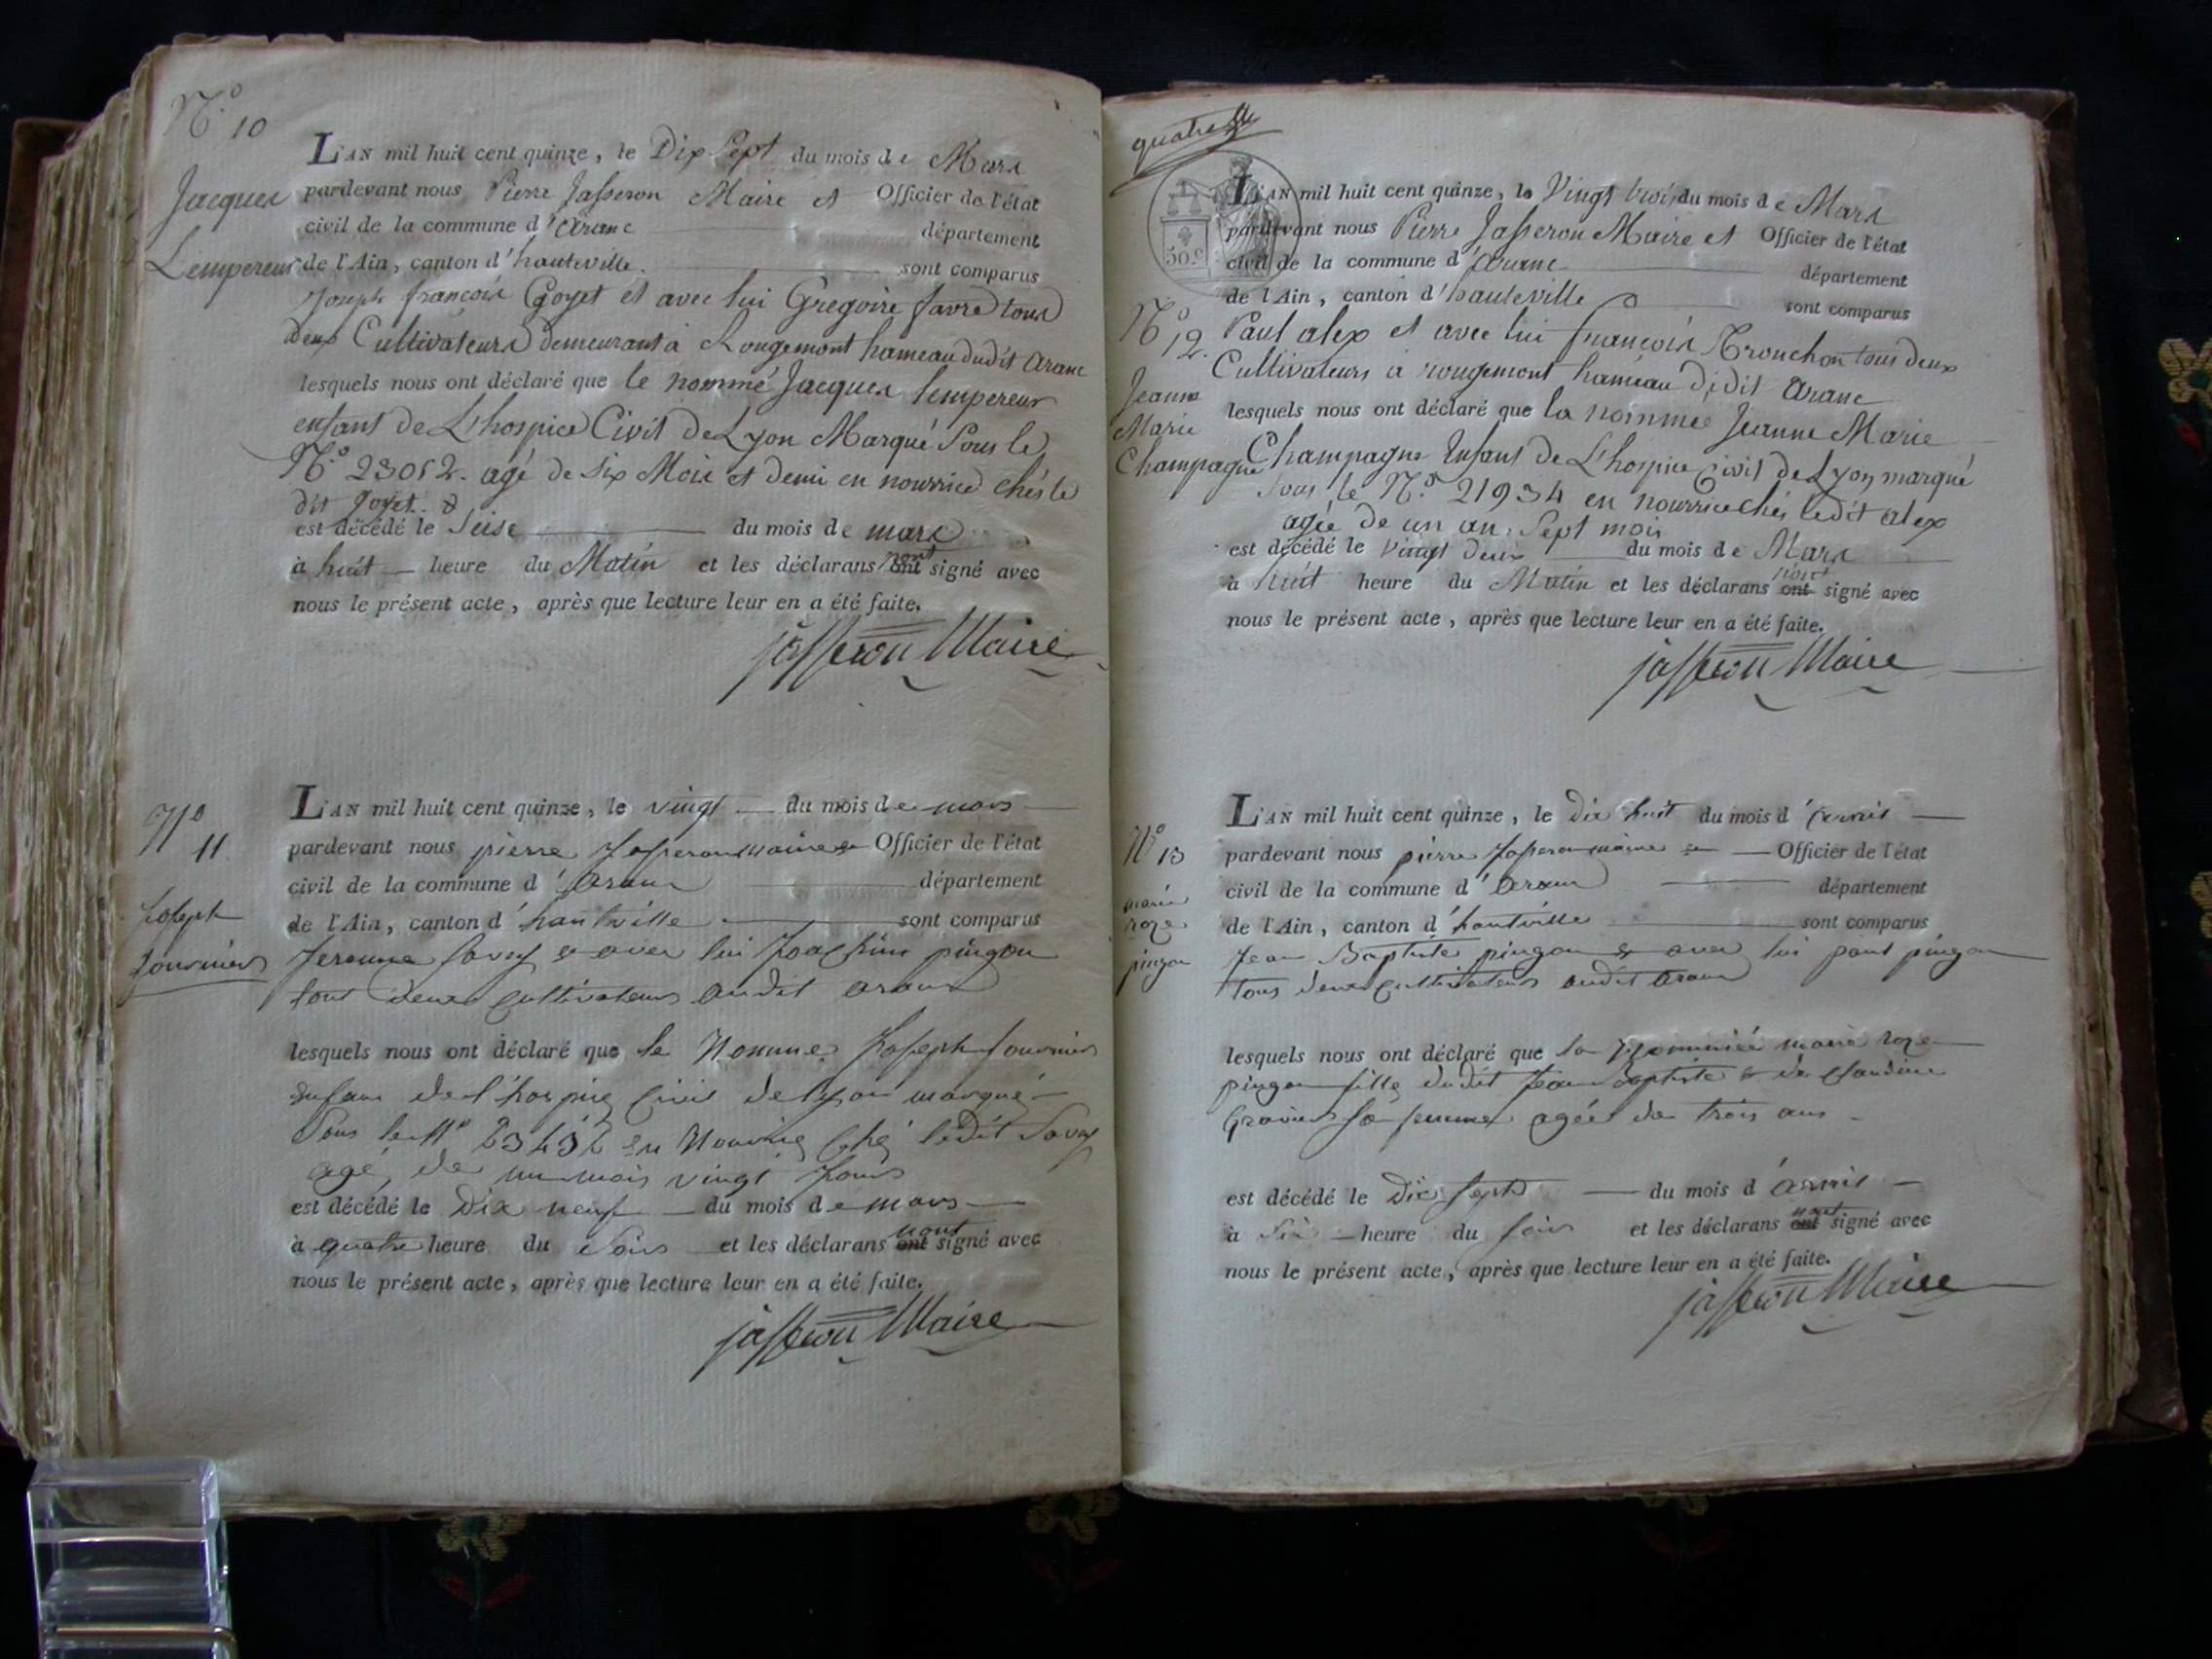 N.º 10
Jacques
Lempereur
L'AN mil huit cent quinze, le Dix Sept du mois de Mars
pardevant nous Pierre Jasseron Maire et Officier de l'état
civil de la commune d'Aranc département
de l'Ain, canton d'hauteville. sont comparus
Joseph françois Goyet et avec lui Gregoire favre tous
deux Cultivateurs demeurant à Rougemont hameau dudit Aranc
lesquels nous ont déclaré que le nommé Jacques lempereur
enfant de L'hospice Civil de Lyon Marqué Sous le
N.º 23052. agé de Six Mois et demi en nourrice chés le
dit goyet.
est décédé le Seise du mois de mars
à huit heure du Matin et les déclarans ont nont signé avec
nous le présent acte, après que lecture leur en a été faite.
jasseron Maire
Nº 11
Joseph
fournier
L'AN mil huit cent quinze, le vingt du mois de mars
pardevant nous pierre Jasseron maire et Officier de l'état
civil de la commune d'Aranc département
de l'Ain, canton d'hautville sont comparus
Jerome Savey et avec lui Joachim pingon
tout deux cultivateurs audit aranc
lesquels nous ont déclaré que le Nomme Joseph fournier
enfant de l'hospice Civil de lyon marqué
Sous le Nº 23432 en Nourrice Ché ledit Savey
agé de un mois vingt Jours
est décédé le Dix neuf du mois de mars
à quatre heure du Soir et les déclarans ont nont signé avec
nous le présent acte, après que lecture leur en a été faite.
jasseron Maire
quatre
50.c
L'AN mil huit cent quinze, le Vingt trois du mois de Mars
pardevant nous Pierre Jasseron Maire et Officier de l'état
civil de la commune d'Aranc département
de l'Ain, canton d'hauteville sont comparus
Nº 12.
Jeanne
Marie
Champagne
Paul alex et avec lui françois Tronchon tous deux
Cultivateurs à rougemont hameau dudit Aranc
lesquels nous ont déclaré que la nommée Jeanne Marie
Champagne Enfant de L'hospice Civil de Lyon marqué
Sous le N.º 21934 en nourrice chés ledit alex
agée de un an Sept mois
est décédé le vingt deux du mois de Mars
à huit heure du Matin et les déclarans ont nont signé avec
nous le présent acte, après que lecture leur en a été faite.
jasseron Maire
Nº 13
marie
roze
pingon
L'AN mil huit cent quinze, le dix huit du mois d'avril
pardevant nous pierre Jasseron maire et Officier de l'état
civil de la commune d'Aranc département
de l'Ain, canton d'hautville sont comparus
Jean Baptiste pingon et avec lui paul pingon
tous deux cultivateurs audit Aranc
lesquels nous ont déclaré que la Nommée marie roze
pingon fille dudit Jean Baptiste et de Claudine
Gravier Sa femme agée de trois ans
est décédé le Dix Sept du mois d'avril
à Six heure du Soir et les déclarans ont nont signé avec
nous le présent acte, après que lecture leur en a été faite.
jasseron Maire